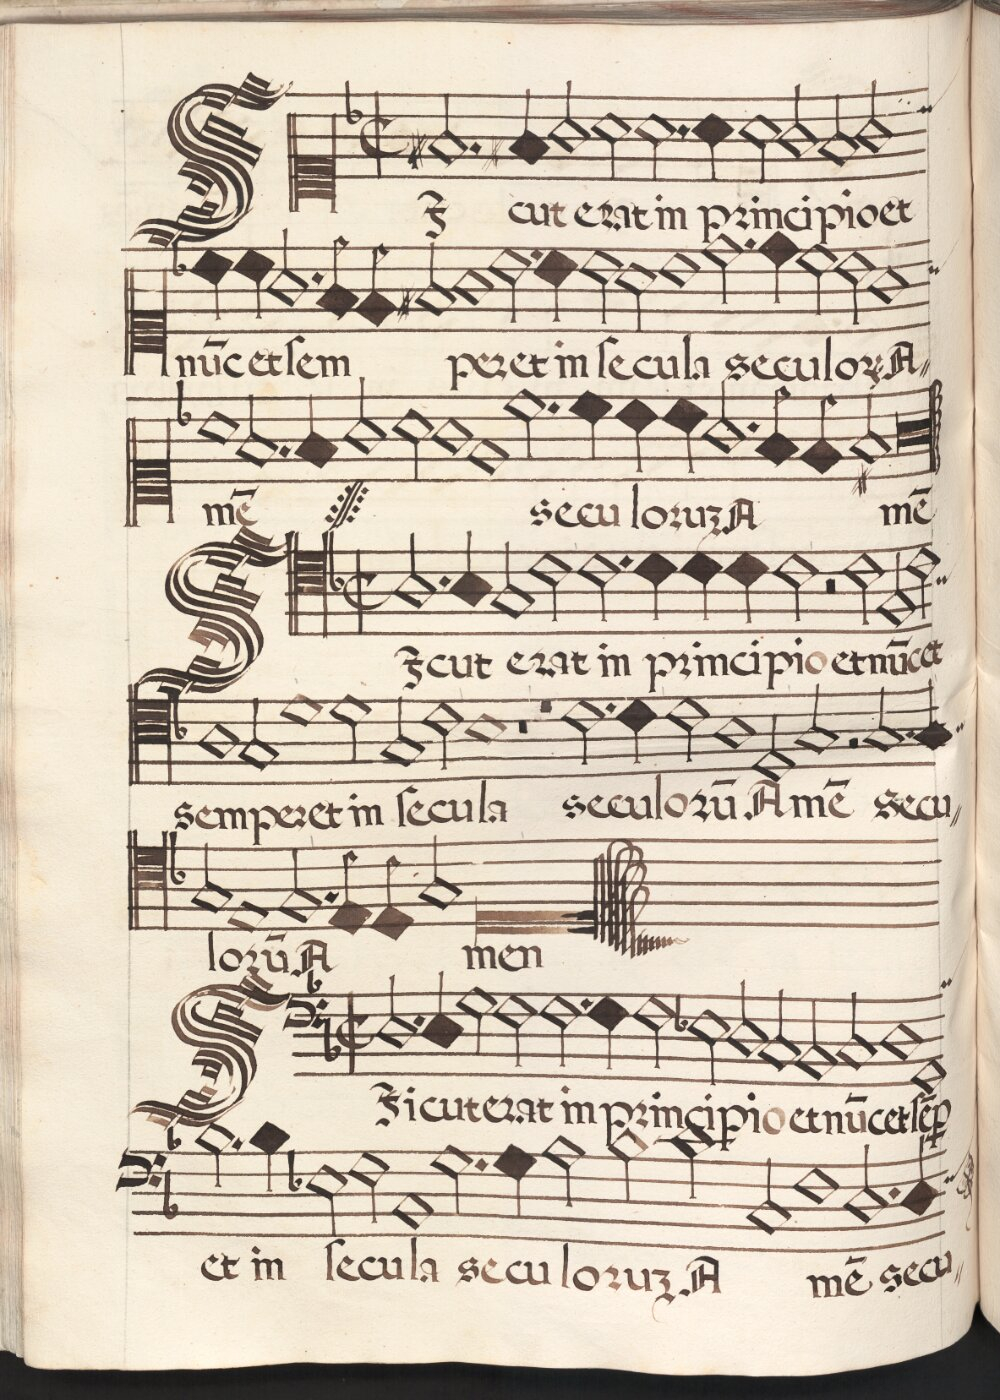 SI cut erat in principio et
nūc et sem per et in secula seculorꝫ A
mē seculoruꝫ A mē
SIcut erat in principio et nūc et
semper et in secula seculorū A mē secu
lorū A men
SIicut erat in principio et nūc et sēp
et in secula seculoruꝫ A mē secu